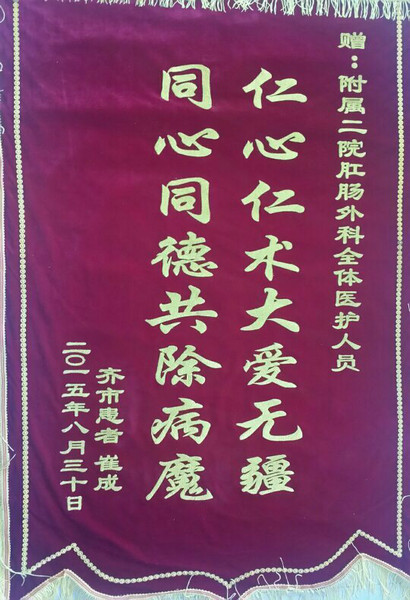 赠：附属二院肛肠外科全体医护人员
仁心仁术大爱无疆
同心同德共除病魔
齐市患者 崔成
二〇一五年八月三十日